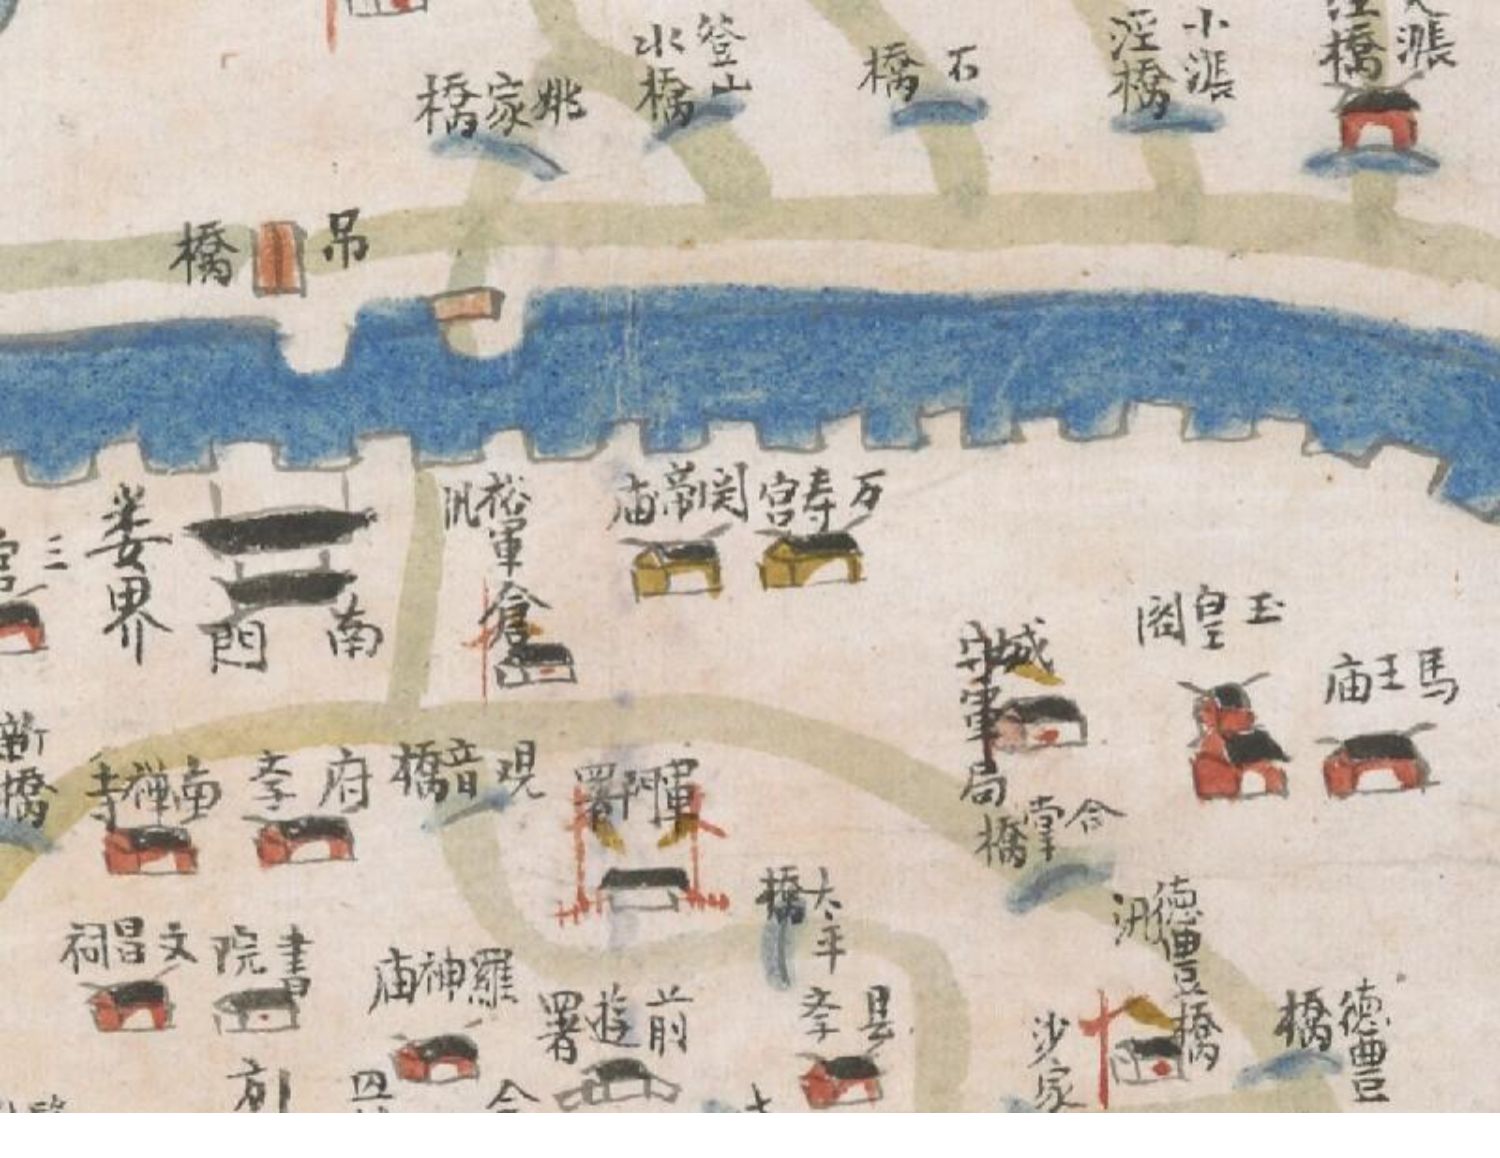 姚家橋
登山水橋
石橋
小漲涇橋
大漲涇橋
吊橋
三官
婁界
南門
裕軍倉汛
關帝庙
万寿宮
城守軍局
玉皇閣
馬王庙
新橋
南禅寺
府孝
观音橋
軍門署
合掌橋
太平橋
德豊橋汛
德豊橋
文昌祠
書院
羅神庙
前遊署
县孝
沙家